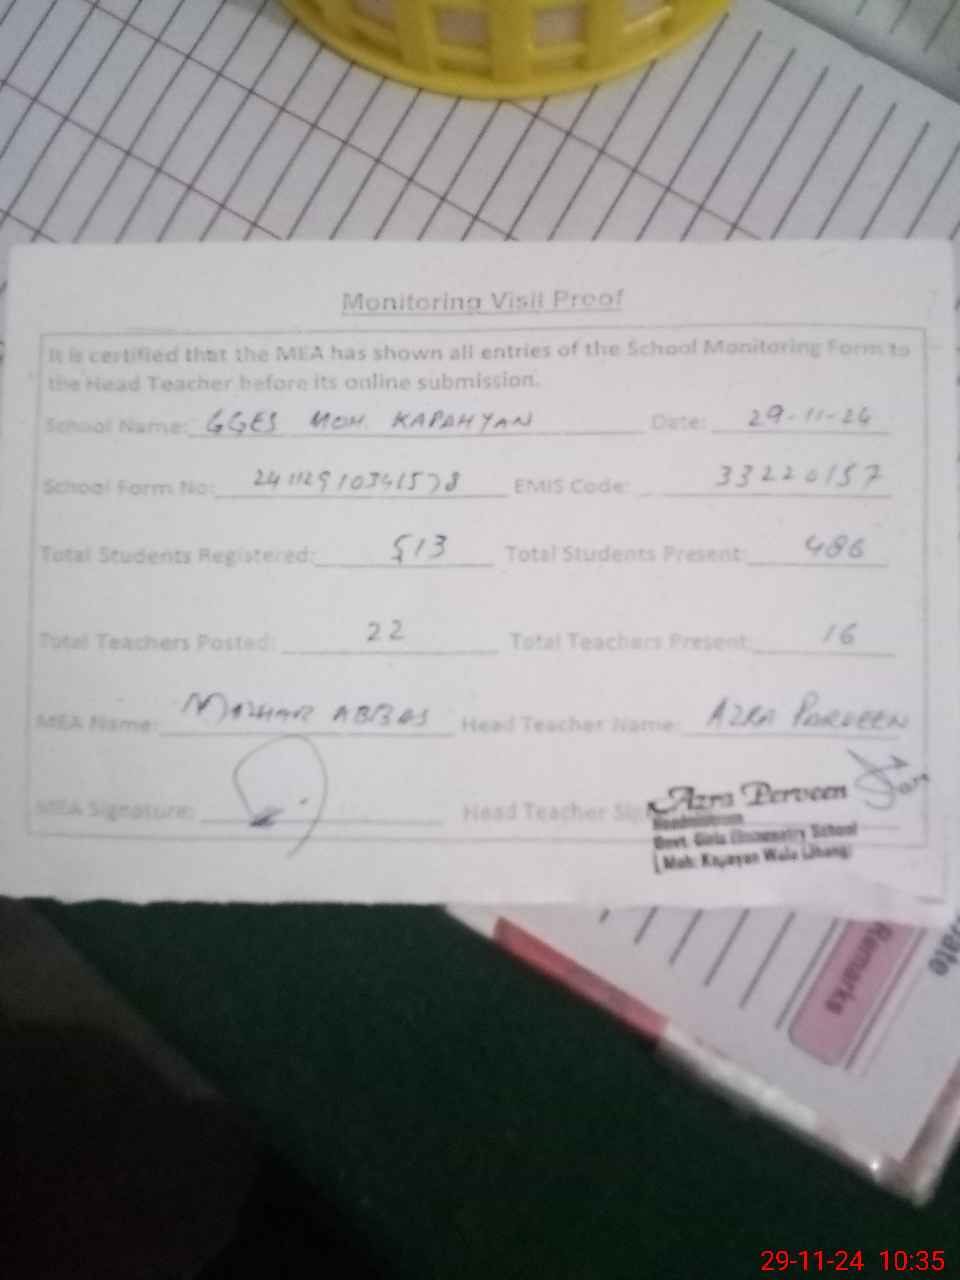 Monitoring Visit Proof
It is certified that the MEA has shown all entries of the School Monitoring Form to
the Head Teacher before its online submission.
School Name: GGES MOH. KAPAHYAN Date: 29-11-24
School Form No: 24112910341578 EMIS Code: 33220157
Total Students Registered: 513 Total Students Present: 486
Total Teachers Posted: 22 Total Teachers Present: 16
MEA Name: MAZHAR ABBAS Head Teacher Name: AZRA PARVEEN
MEA Signature: Head Teacher
Azra Perveen
Govt. Girls Elementary School
Moh: Kapayan Wala (Jhang)
Remarks
Date
29-11-24 10:35